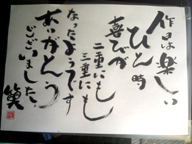 作品は楽しい
ひと時
喜びが
二重にも
三重にも
なったようです
ありがとう
ございました